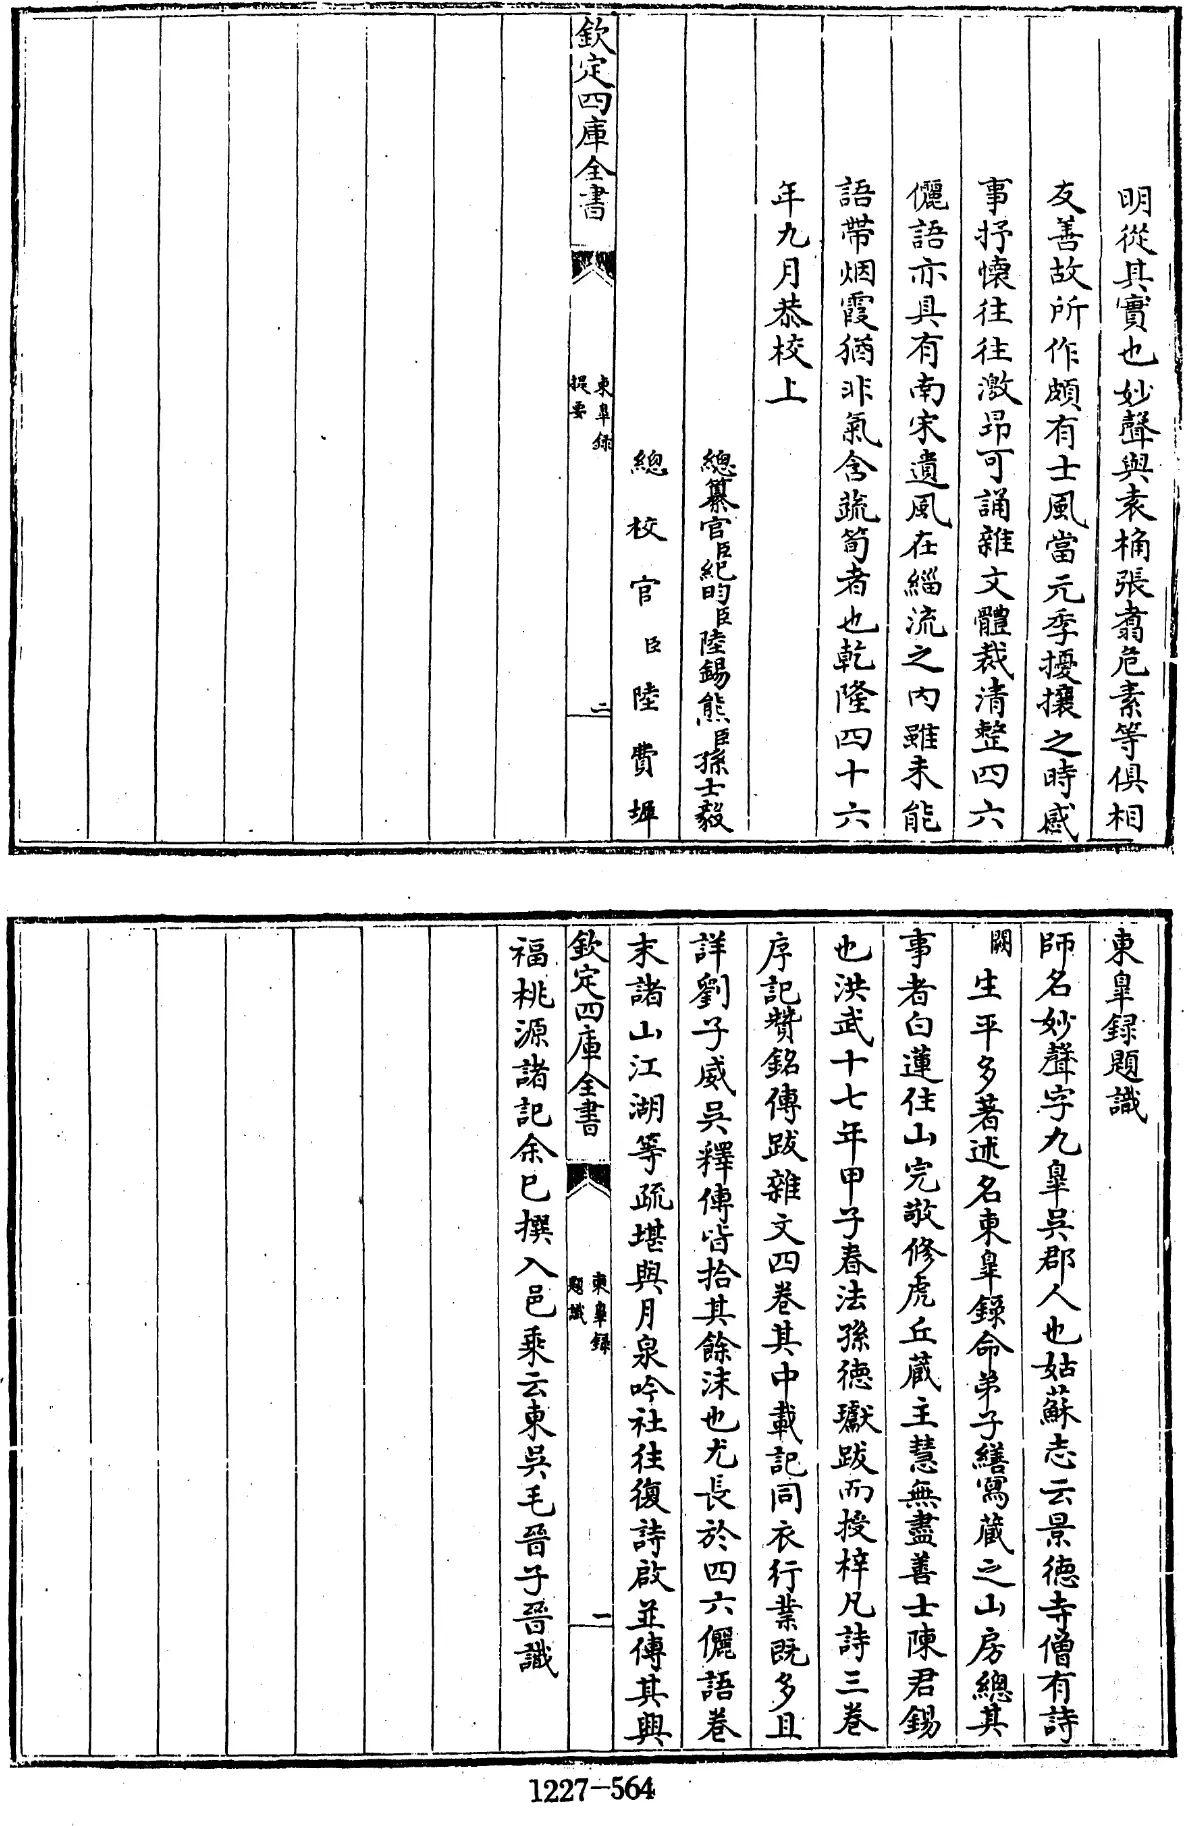 明從其實也妙聲與袁桷張翥危素等俱相
友善故所作頗有士風當元季擾攘之時感
事抒懷往往激昻可誦雜文體裁清整四六
儷語亦具有南宋遺風在緇流之内雖未能
語帶烟霞猶非氣含蔬筍者也乾隆四十六
年九月恭校上
總纂官臣紀昀臣陸錫熊臣孫士毅
總校官臣陸費墀
欽定四庫全書
東臯録
提要
二
東臯録題識
師名妙聲字九臯吳郡人也姑蘇志云景德寺僧有詩
闕生平多著述名東臯錄命弟子繕寫藏之山房總其
事者白蓮住山完敬修虎丘藏主慧無盡善士陳君錫
也洪武十七年甲子春法孫德瓛跋而授梓凡詩三卷
序記贊銘傳跋雜文四卷其中載記同衣行業既多且
詳劉子威吳釋傳皆拾其餘沫也尤長於四六儷語卷
末諸山江湖等疏堪與月泉吟社往復詩啟並傳其興
欽定四庫全書
東臯録
題識
一
福桃源諸記余已撰入邑乘云東吳毛晉子晉識
1227-564